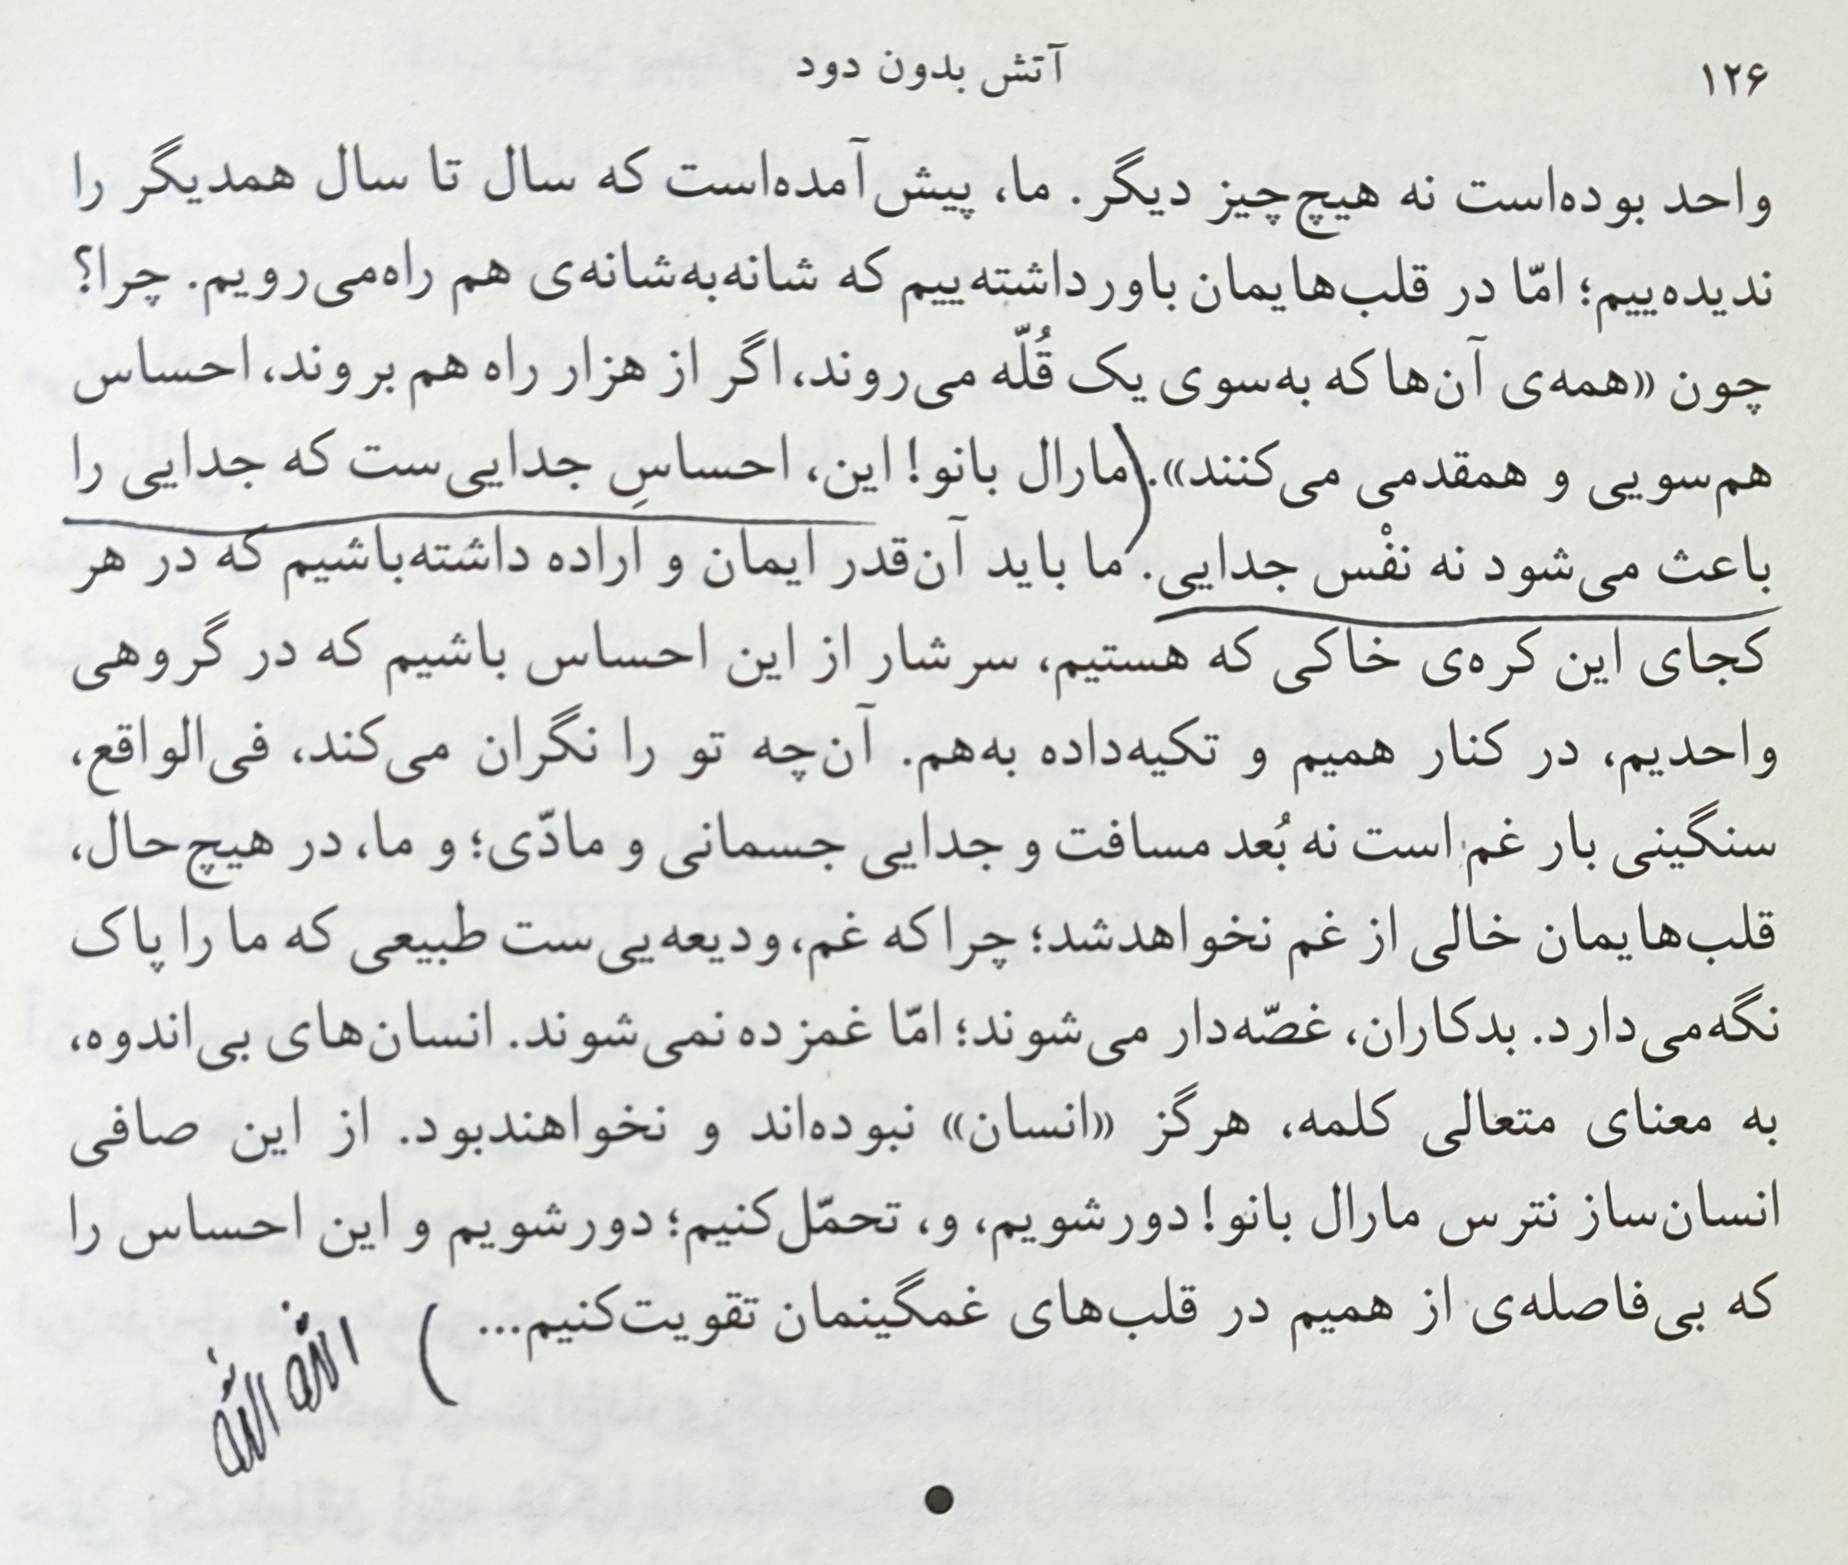 ۱۲۶
آتش بدون دود
واحد بوده‌است نه هیچ‌چیز دیگر. ما، پیش‌آمده‌است که سال تا سال همدیگر را
ندیده‌ییم؛ امّا در قلب‌هایمان باورداشته‌ییم که شانه‌به‌شانه‌ی هم راه‌می‌رویم. چرا؟
چون «همه‌ی آن‌ها که به‌سوی یک قُلّه می‌روند، اگر از هزار راه هم بروند، احساس
هم‌سویی و همقدمی می‌کنند». (مارال بانو! این، احساسِ جدایی‌ست که جدایی را
باعث می‌شود نه نفْس جدایی. ما باید آن‌قدر ایمان و اراده داشته‌باشیم که در هر
کجای این کره‌ی خاکی که هستیم، سرشار از این احساس باشیم که در گروهی
واحدیم، در کنار همیم و تکیه‌داده به‌هم. آن‌چه تو را نگران می‌کند، فی‌الواقع،
سنگینی بار غم است نه بُعد مسافت و جدایی جسمانی و مادّی؛ و ما، در هیچ‌حال،
قلب‌هایمان خالی از غم نخواهدشد؛ چرا که غم، ودیعه‌یی‌ست طبیعی که ما را پاک
نگه‌می‌دارد. بدکاران، غصّه‌دار می‌شوند؛ امّا غمزده نمی‌شوند. انسان‌های بی‌اندوه،
به معنای متعالی کلمه، هرگز «انسان» نبوده‌اند و نخواهندبود. از این صافی
انسان‌ساز نترس مارال بانو! دورشویم، و، تحمّل‌کنیم؛ دورشویم و این احساس را
که بی‌فاصله‌ی از همیم در قلب‌های غمگینمان تقویت‌کنیم... )
الله الله